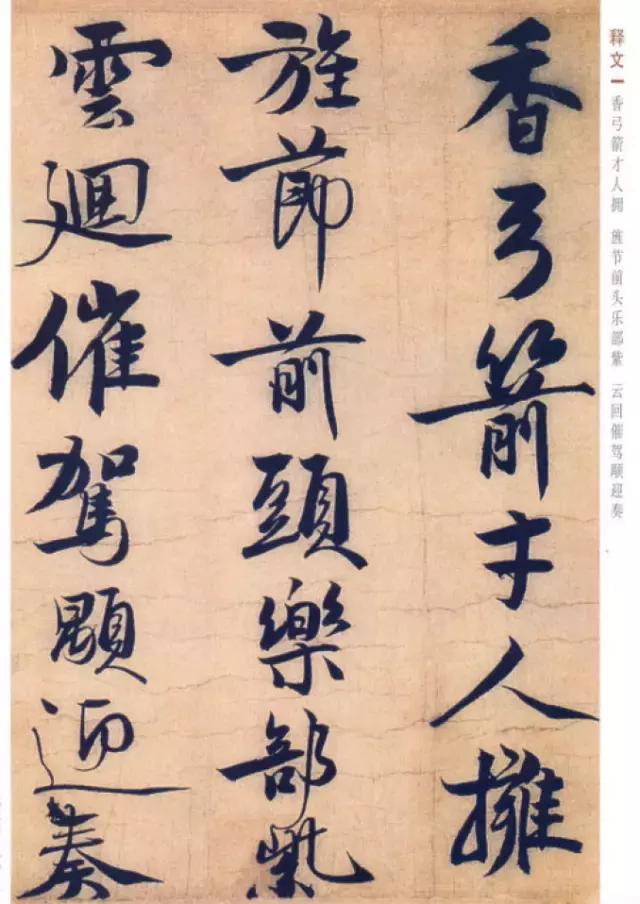 释文一 香弓箭才人拥 旌节前头乐部紫 云回催驾颙迎奏
香弓箭才人擁
旌節前頭樂部紫
雲迴催駕顒迎奏